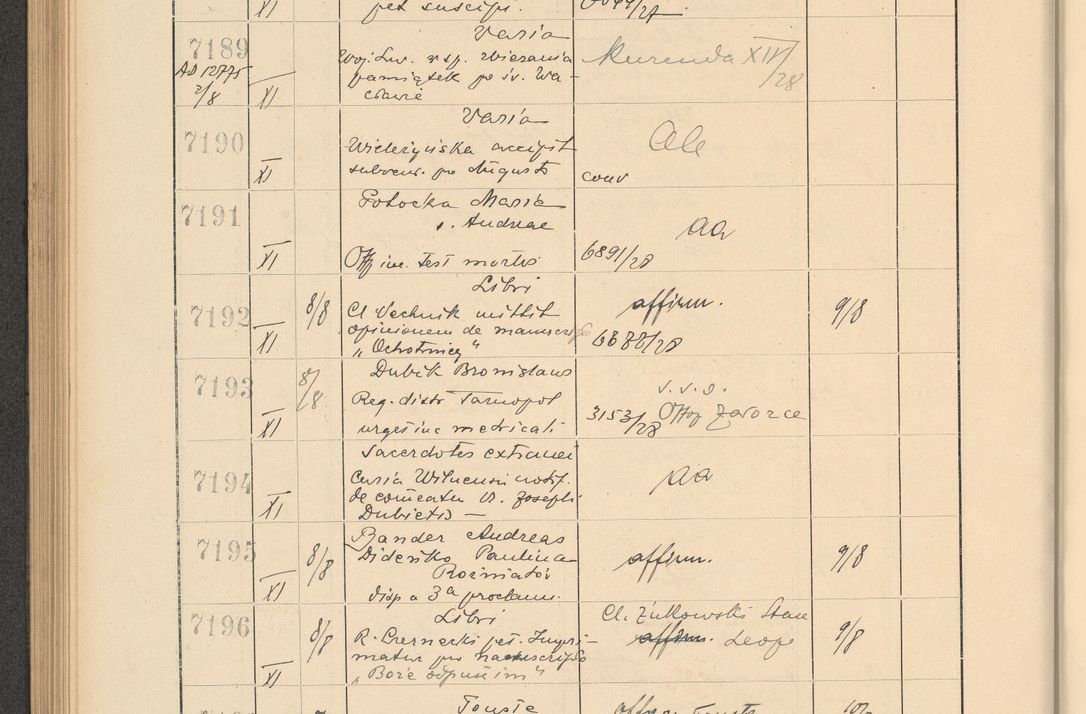 XI pet. suscipi. 6044/27
Varia
7189 Woj. Lw. w sp. zbierania Kurenda XIII/28
AD 12775 pamiątek po śv. Wa-
2/8 XI cławie
Varia
7190 accipit Ale
XI subven. po Augusto conv
7191 Potocka Maria
s. Andreae aa
XI Off inc. test mortis 6891/28
Libri
7192 8/8 Cl Vechnik mittit affirm. 9/8
XI opinionem de manuscripto 6688/28
„Ochotnicy"
7193 8/8 Dubik Bronislaus
Reg. distr Tarnopol v. s. o.
XI urget inc metricali 3153/28 Off Zavozce
Sacerdotes extranei
7194 Curia Wilnensis notif. aa
XI de comeatu VI. Josephi
Dubietis —
7195 8/8 Bander Andreas
Didenko Paulina affirm. 9/8
Rożniatów
XI disp a 3a proclam.
7196 Libri Cl. Żukowski
8/8 R. Czernecki pet. Impri- affirm. Leop 9/8
matur pro manuscripto
XI „Boże odpuść im"
Fouste